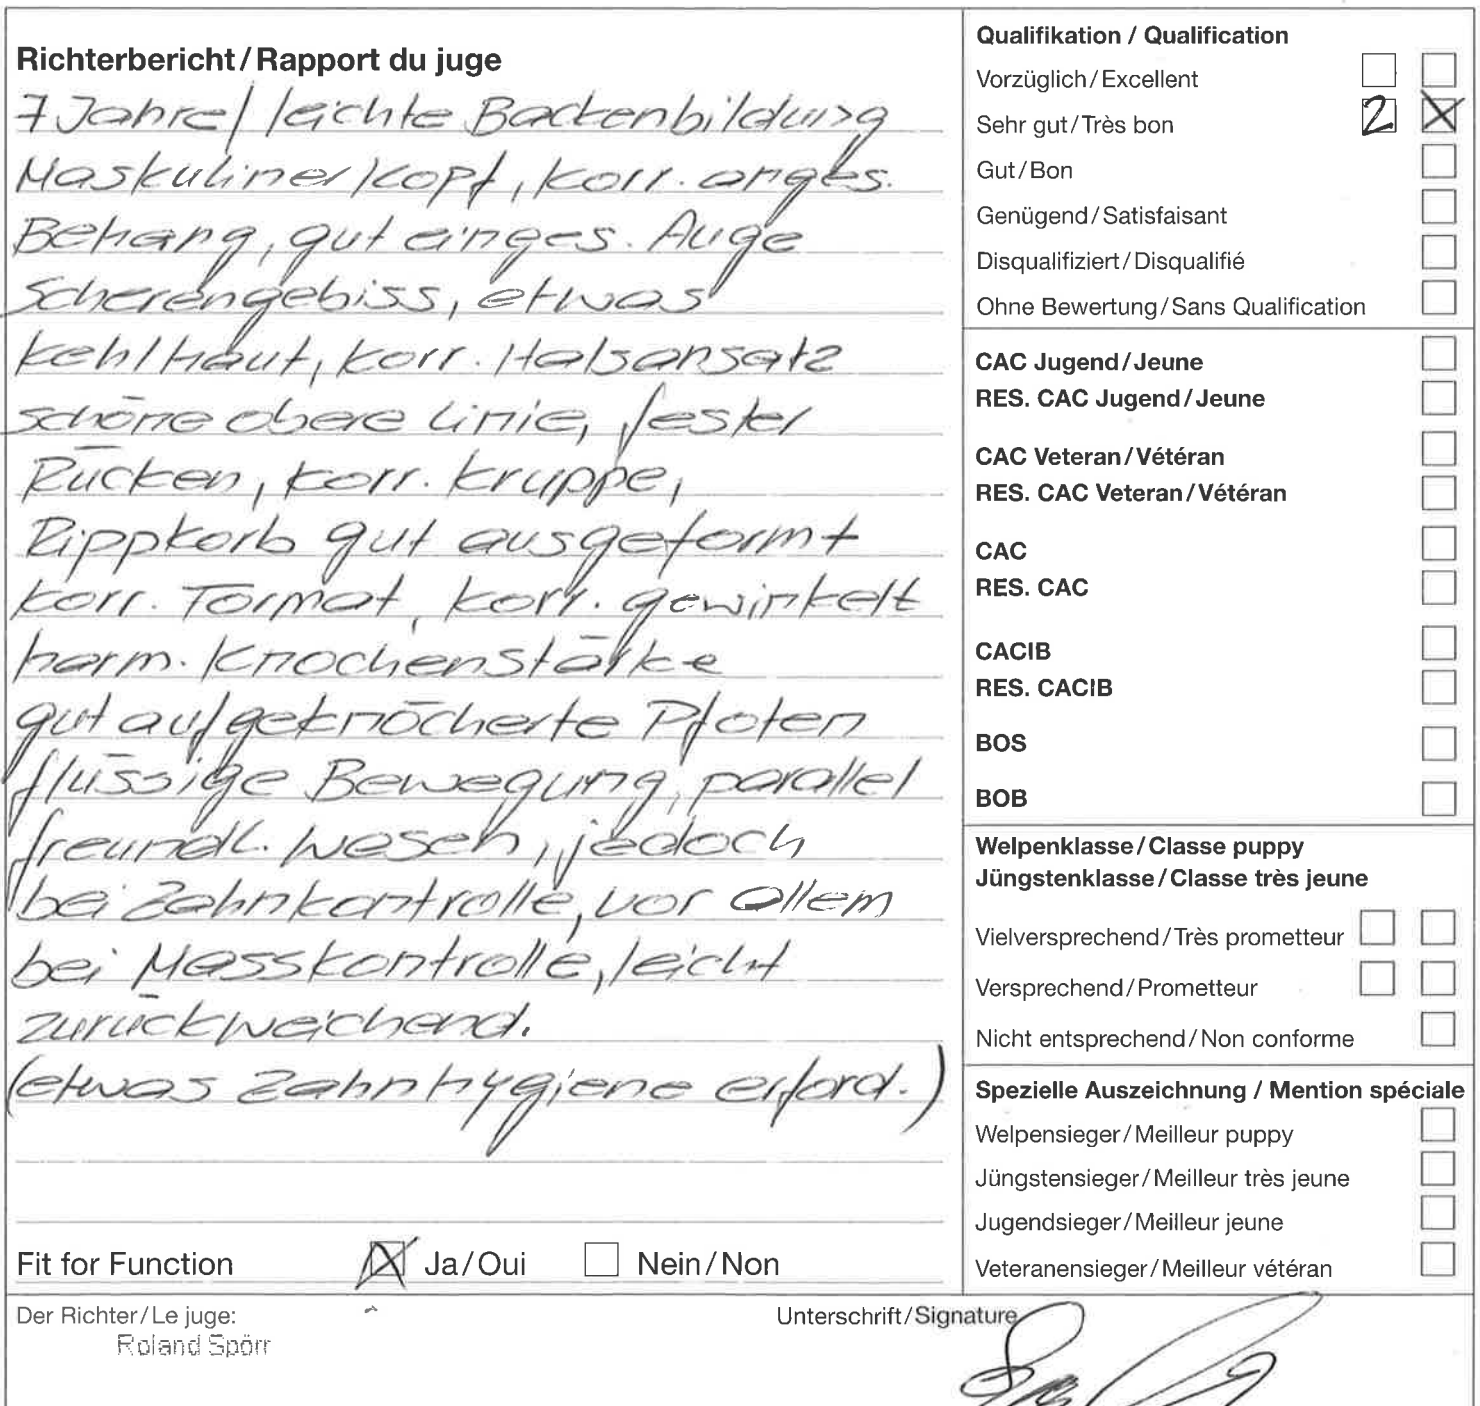 Richterbericht/Rapport du juge
7 Jahre/ leichte Backenbildung
Maskuliner Kopf, korr. anges.
Behang, gut einges. Auge
Scherengebiss, etwas
Kehlhaut, korr. Halsansatz
schöne obere Linie, fester
Rücken, korr. Kruppe,
Rippkorb gut ausgeformt
korr. Format, korr. gewinkelt
harm. Knochenstärke
gut aufgeknöcherte Pfoten
flüssige Bewegung, parallel
freundl. Wesen, jedoch
bei Zahnkontrolle, vor allem
bei Masskontrolle, leicht
zurückweichend.
(etwas Zahnhygiene erford.)
Fit for Function Ja/Oui Nein/Non
Qualifikation / Qualification
Vorzüglich/Excellent
Sehr gut/Très bon 2
Gut/Bon
Genügend/Satisfaisant
Disqualifiziert/Disqualifié
Ohne Bewertung/Sans Qualification
CAC Jugend/Jeune
RES. CAC Jugend/Jeune
CAC Veteran/Vétéran
RES. CAC Veteran/Vétéran
CAC
RES. CAC
CACIB
RES. CACIB
BOS
BOB
Welpenklasse/Classe puppy
Jüngstenklasse/Classe très jeune
Vielversprechend/Très prometteur
Versprechend/Prometteur
Nicht entsprechend/Non conforme
Spezielle Auszeichnung / Mention spéciale
Welpensieger/Meilleur puppy
Jüngstensieger/Meilleur très jeune
Jugendsieger/Meilleur jeune
Veteranensieger/Meilleur vétéran
Der Richter/Le juge:
Roland Spörr
Unterschrift/Signature